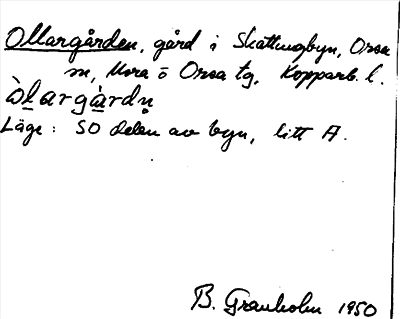 Ollargården, gård i Skattungbyn, Orsa
sn, Mora o Orsa tg, Kopparb. l.
òḻargà̱rdṇ
Läge: SO delen av byn, litt A.
B. Granholm 1950